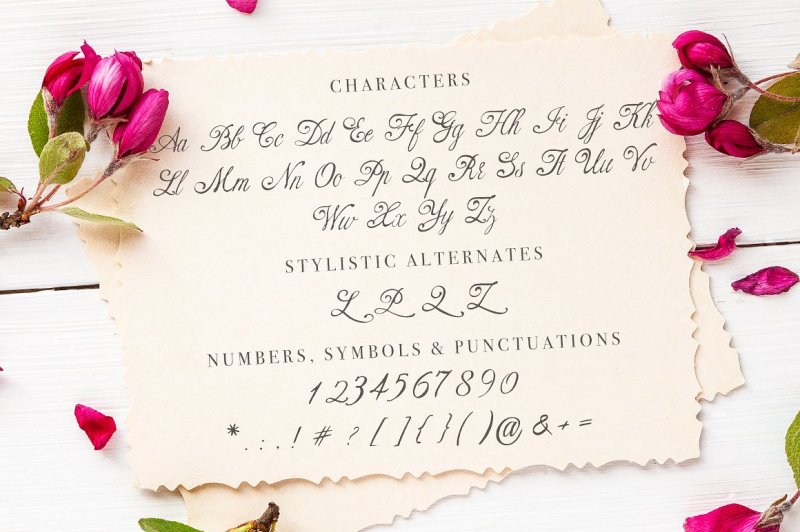 CHARACTERS
Aa Bb Cc Dd Ee Ff Gg Hh Ii Jj Kk
Ll Mm Nn Oo Pp Qq Rr Ss Tt Uu Vv
Ww Xx Yy Zz
STYLISTIC ALTERNATES
L P Q Z
NUMBERS, SYMBOLS & PUNCTUATIONS
1 2 3 4 5 6 7 8 9 0
* . : , ! # ? [ ] { } ( ) @ & + =